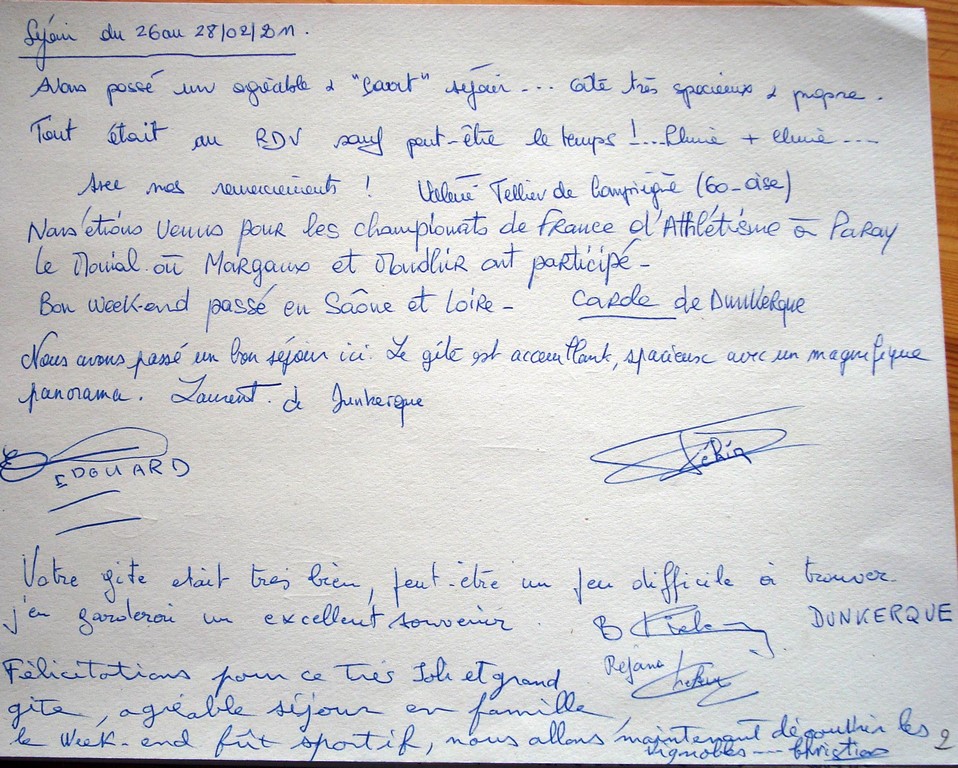 Séjour du 26 au 28/02/2011.
Avons passé un agréable & "court" séjour... Gîte très spacieux & propre.
Tout était au RDV sauf peut-être le temps !... Pluie + pluie ....
Avec nos remerciements ! Valérie Tellier de Compiègne (60-oise)
Nous étions venus pour les championats de France d'Athlétisme à Paray
le Monial où Margaux et ont participé -
Bon week-end passé en Saône et Loire - Carole de Dunkerque
Nous avons passé un bon séjour ici. Le gîte est acceuillant, spacieux avec un magnifique
panorama. Laurent. de Dunkerque
EDOUARD
Votre gite etait très bien, peut-être un peu difficile à trouver.
j'en garderai un excellent souvenir. B DUNKERQUE
Réjane
Félicitations pour ce très joli et grand
gîte, agréable séjour en famille,
le week-end fût sportif, nous allons maintenant découvrir les
vignobles --- Christian
2